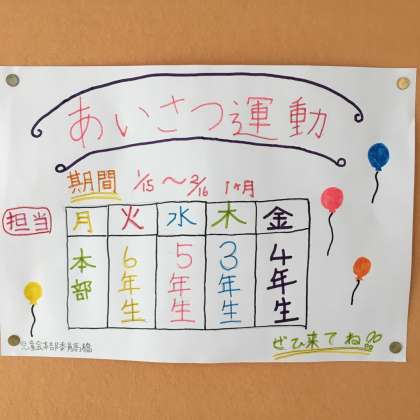 あいさつ運動
期間 1/15〜2/16 1ヶ月
担当
月 火 水 木 金
本部 6年生 5年生 3年生 4年生
ぜひ来てね